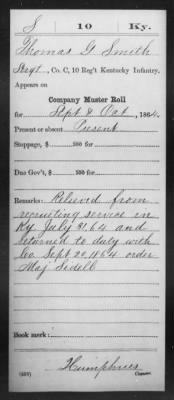 S | 10 | Ky.
Thomas G Smith
Sergt, Co. C, 10 Reg't Kentucky Infantry.
Appears on
Company Muster Roll
for Sept & Oct, 1864.
Present or absent Present
Stoppage, $ 100 for
Due Gov't, $ 100 for
Remarks: Relieved from
recruiting service in
Ky July 31, 64 and
returned to duty with
Co Sept 20, 1864 order
Maj Sidell
Book mark:
Humphries
(358) Copyist.